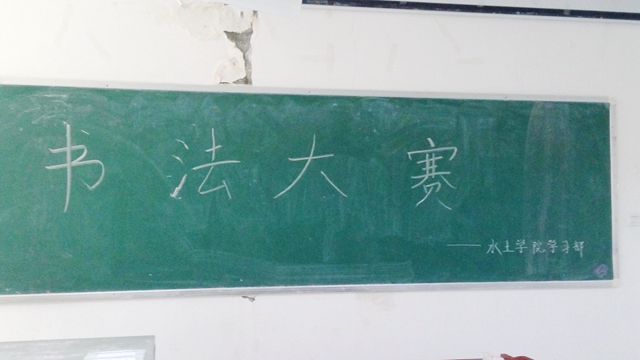 书法大赛
——水土学院学习部